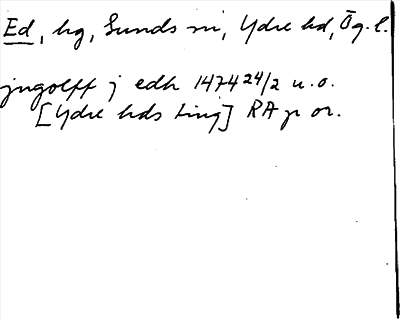 Ed, hg, Sunds sn, Ydre hd, Ög. l.
jngolff j edh 1474 24/2 u.o.
[Ydre hds ting] RA p or.